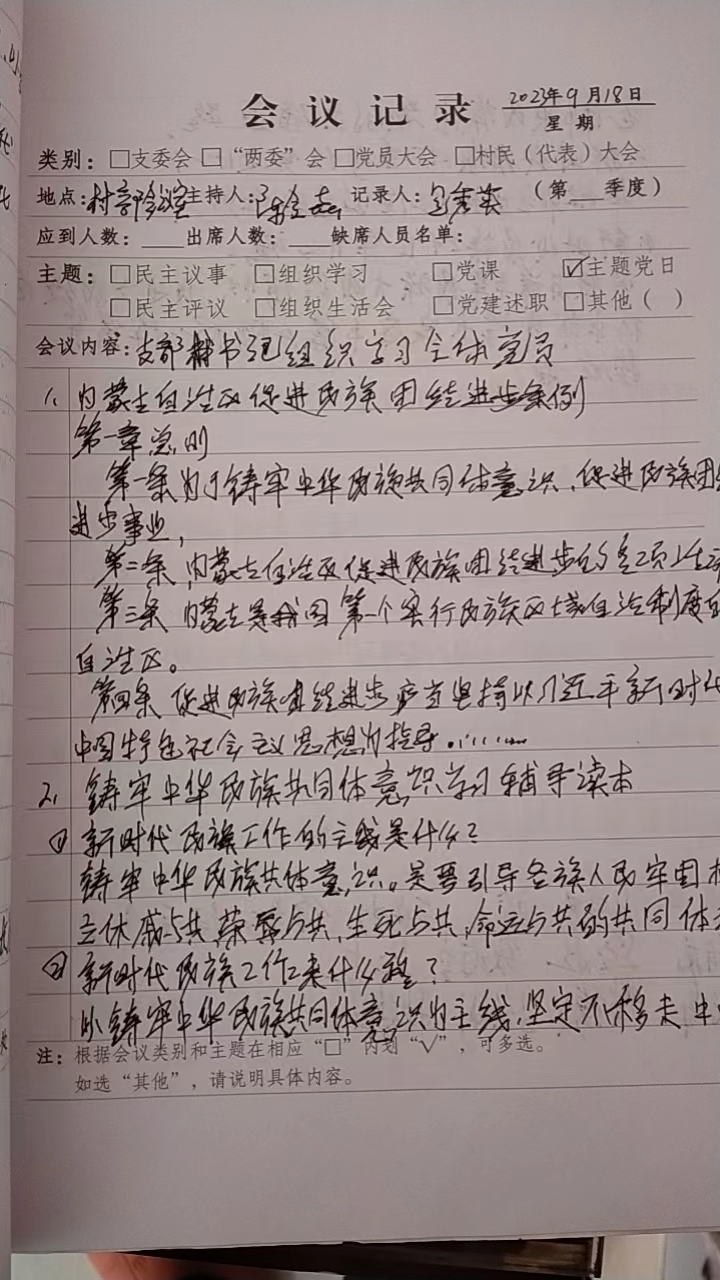 会议记录
2023年9月18日
星期
类别：□支委会 □“两委”会 □党员大会 □村民（代表）大会
地点：村 主持人： 记录人： （第 季度）
应到人数： 出席人数： 缺席人员名单：
主题：□民主议事 □组织学习 □党课 ☑主题党日
□民主评议 □组织生活会 □党建述职 □其他（ ）
会议内容：支部 书记组织学习全体党员
1、内蒙古自治区促进民族团结进步条例
第一章总则
第一条为了铸牢中华民族共同体意识，促进民族团结
进步事业，
第二条，内蒙古自治区促进民族团结进步的各项工作
第三条 内蒙古是我国第一个实行民族区域自治制度的
自治区。
第四条 促进民族团结进步应当坚持以习近平新时代
中国特色社会主义思想为指导。……
2、铸牢中华民族共同体意识学习辅导读本
①新时代民族工作的主线是什么？
铸牢中华民族共体意识。是要引导各族人民牢固树
立休戚与共，荣辱与共，生死与共，命运与共的共同体
②新时代民族工作 什么 ？
以铸牢中华民族共同体意识为主线，坚定不移走中
注：根据会议类别和主题在相应“□”内划“√”，可多选。
如选“其他”，请说明具体内容。